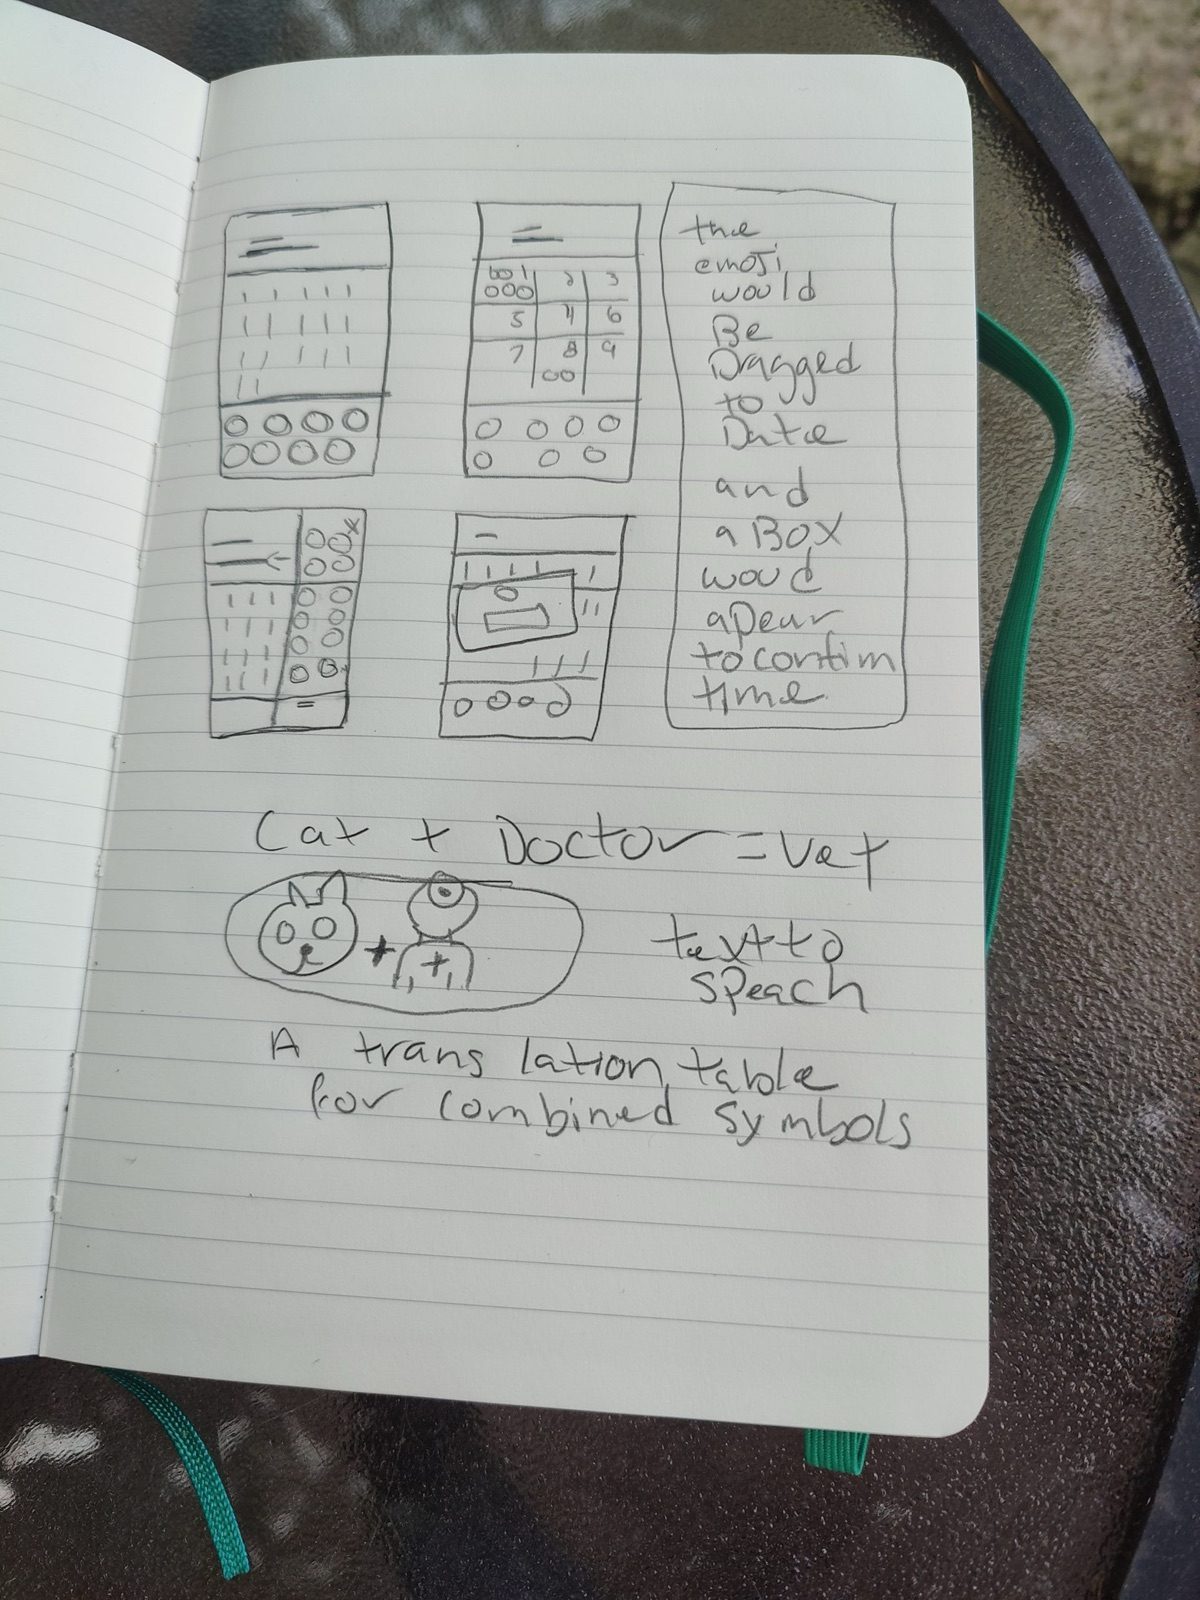 1 2 3
5 4 6
7 8 9
the
emoji
would
Be
Dragged
to
Date
and
a BOX
woud
apear
to confim
time
Cat + Doctor = Vet
+
text to
speach
A translation table
for combined symbols